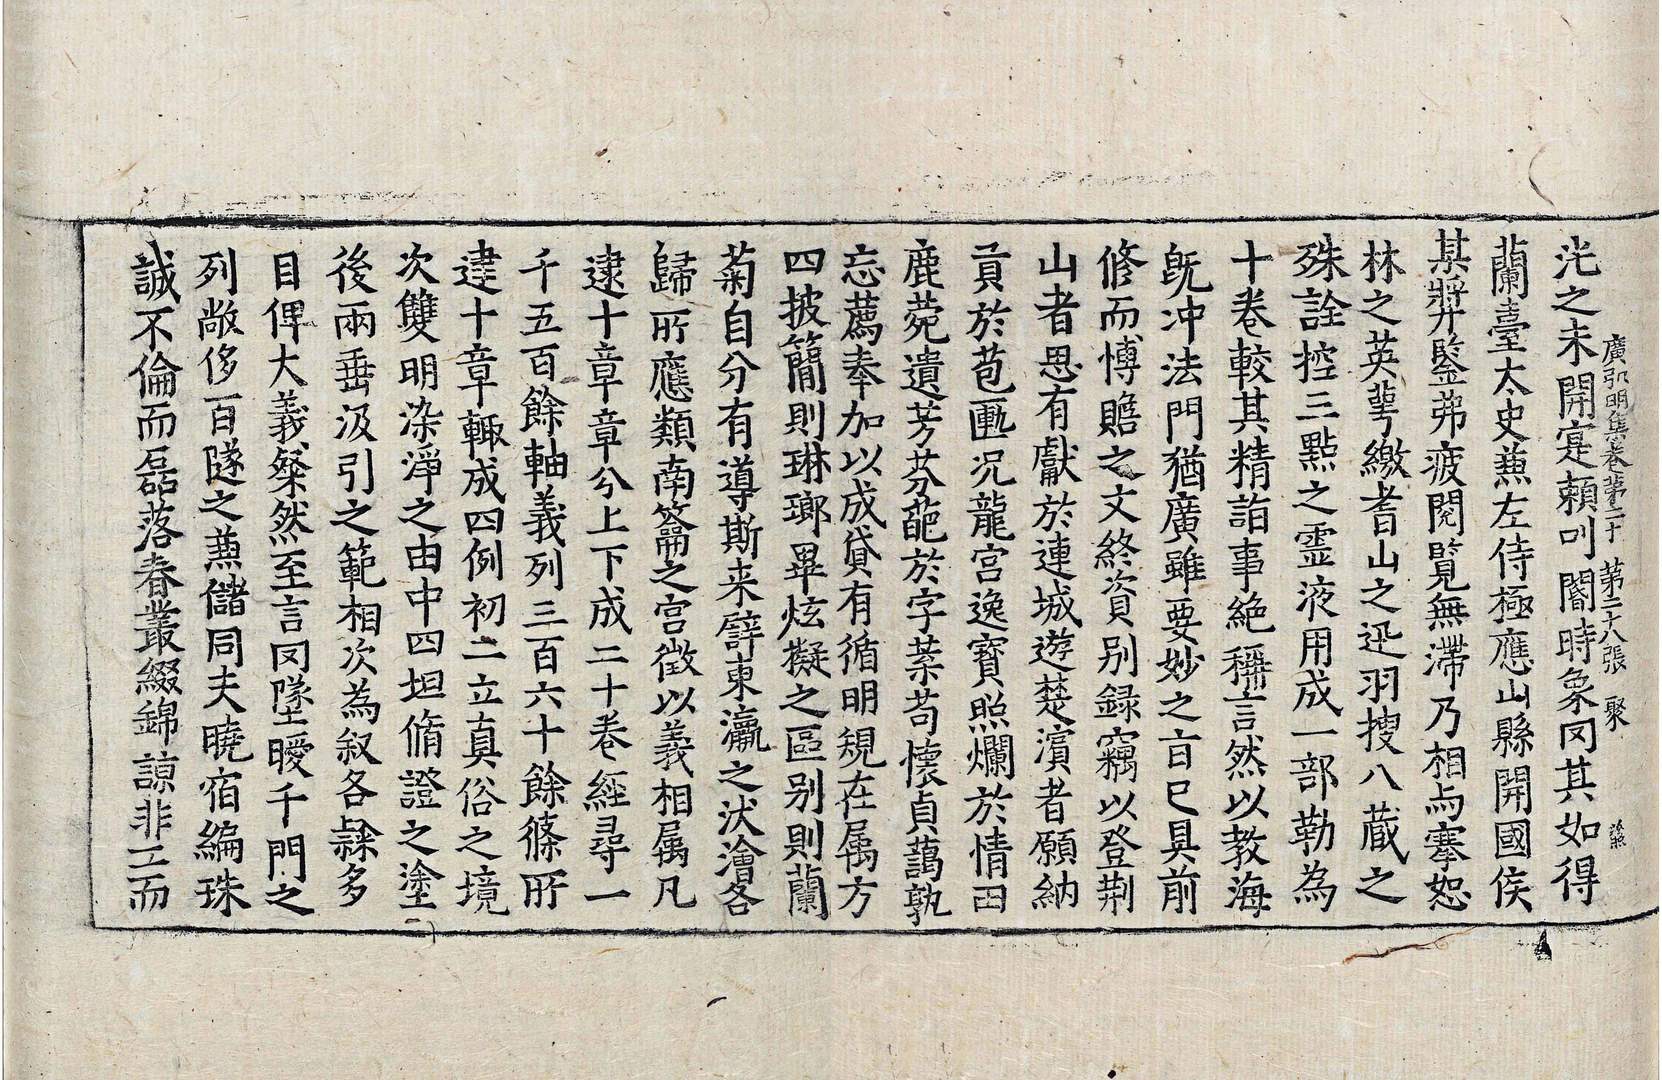 廣弘明集卷第二十 第二十六張 聚
洸之未開寔賴叩閽時象罔其如得
蘭臺太史燕左侍極應山縣開國侯
某弉鑒茀疲閱覽無滯乃相与搴恕
林之英萼繳耆山之迅羽搜八藏之
殊詮控三點之靈液用成一部勒為
十卷較其精詣事絶稱言然以教海
旣沖法門猶廣雖要妙之亩已具前
修而博贍之文終資別録竊以登荆
山者思有獻於連城遊楚濱者願納
貢於苞匭况龍宮逸寶照爛於情田
鹿菀遺芳芬葩於字葉苟懷貞藹孰
忘薦奉加以成貸有循明規在属方
四披簡則琳瑯畢炫擬之區別則蘭
菊自分有導斯来譬東瀛之洑澮各
歸所應類南籥之宫徵以義相属凡
逮十章章分上下成二十卷經尋一
千五百餘軸義列三百六十餘條所
逮十章輙成四例初二立真俗之境
次雙明染淨之由中四坦脩證之塗
後兩垂汲引之範相次為叙各隸多
目俾大義粲然至言罔墜曖千門之
列敞侈百隧之燕儲同夫曉宿編珠
誠不倫而磊落春叢綴錦諒非工而